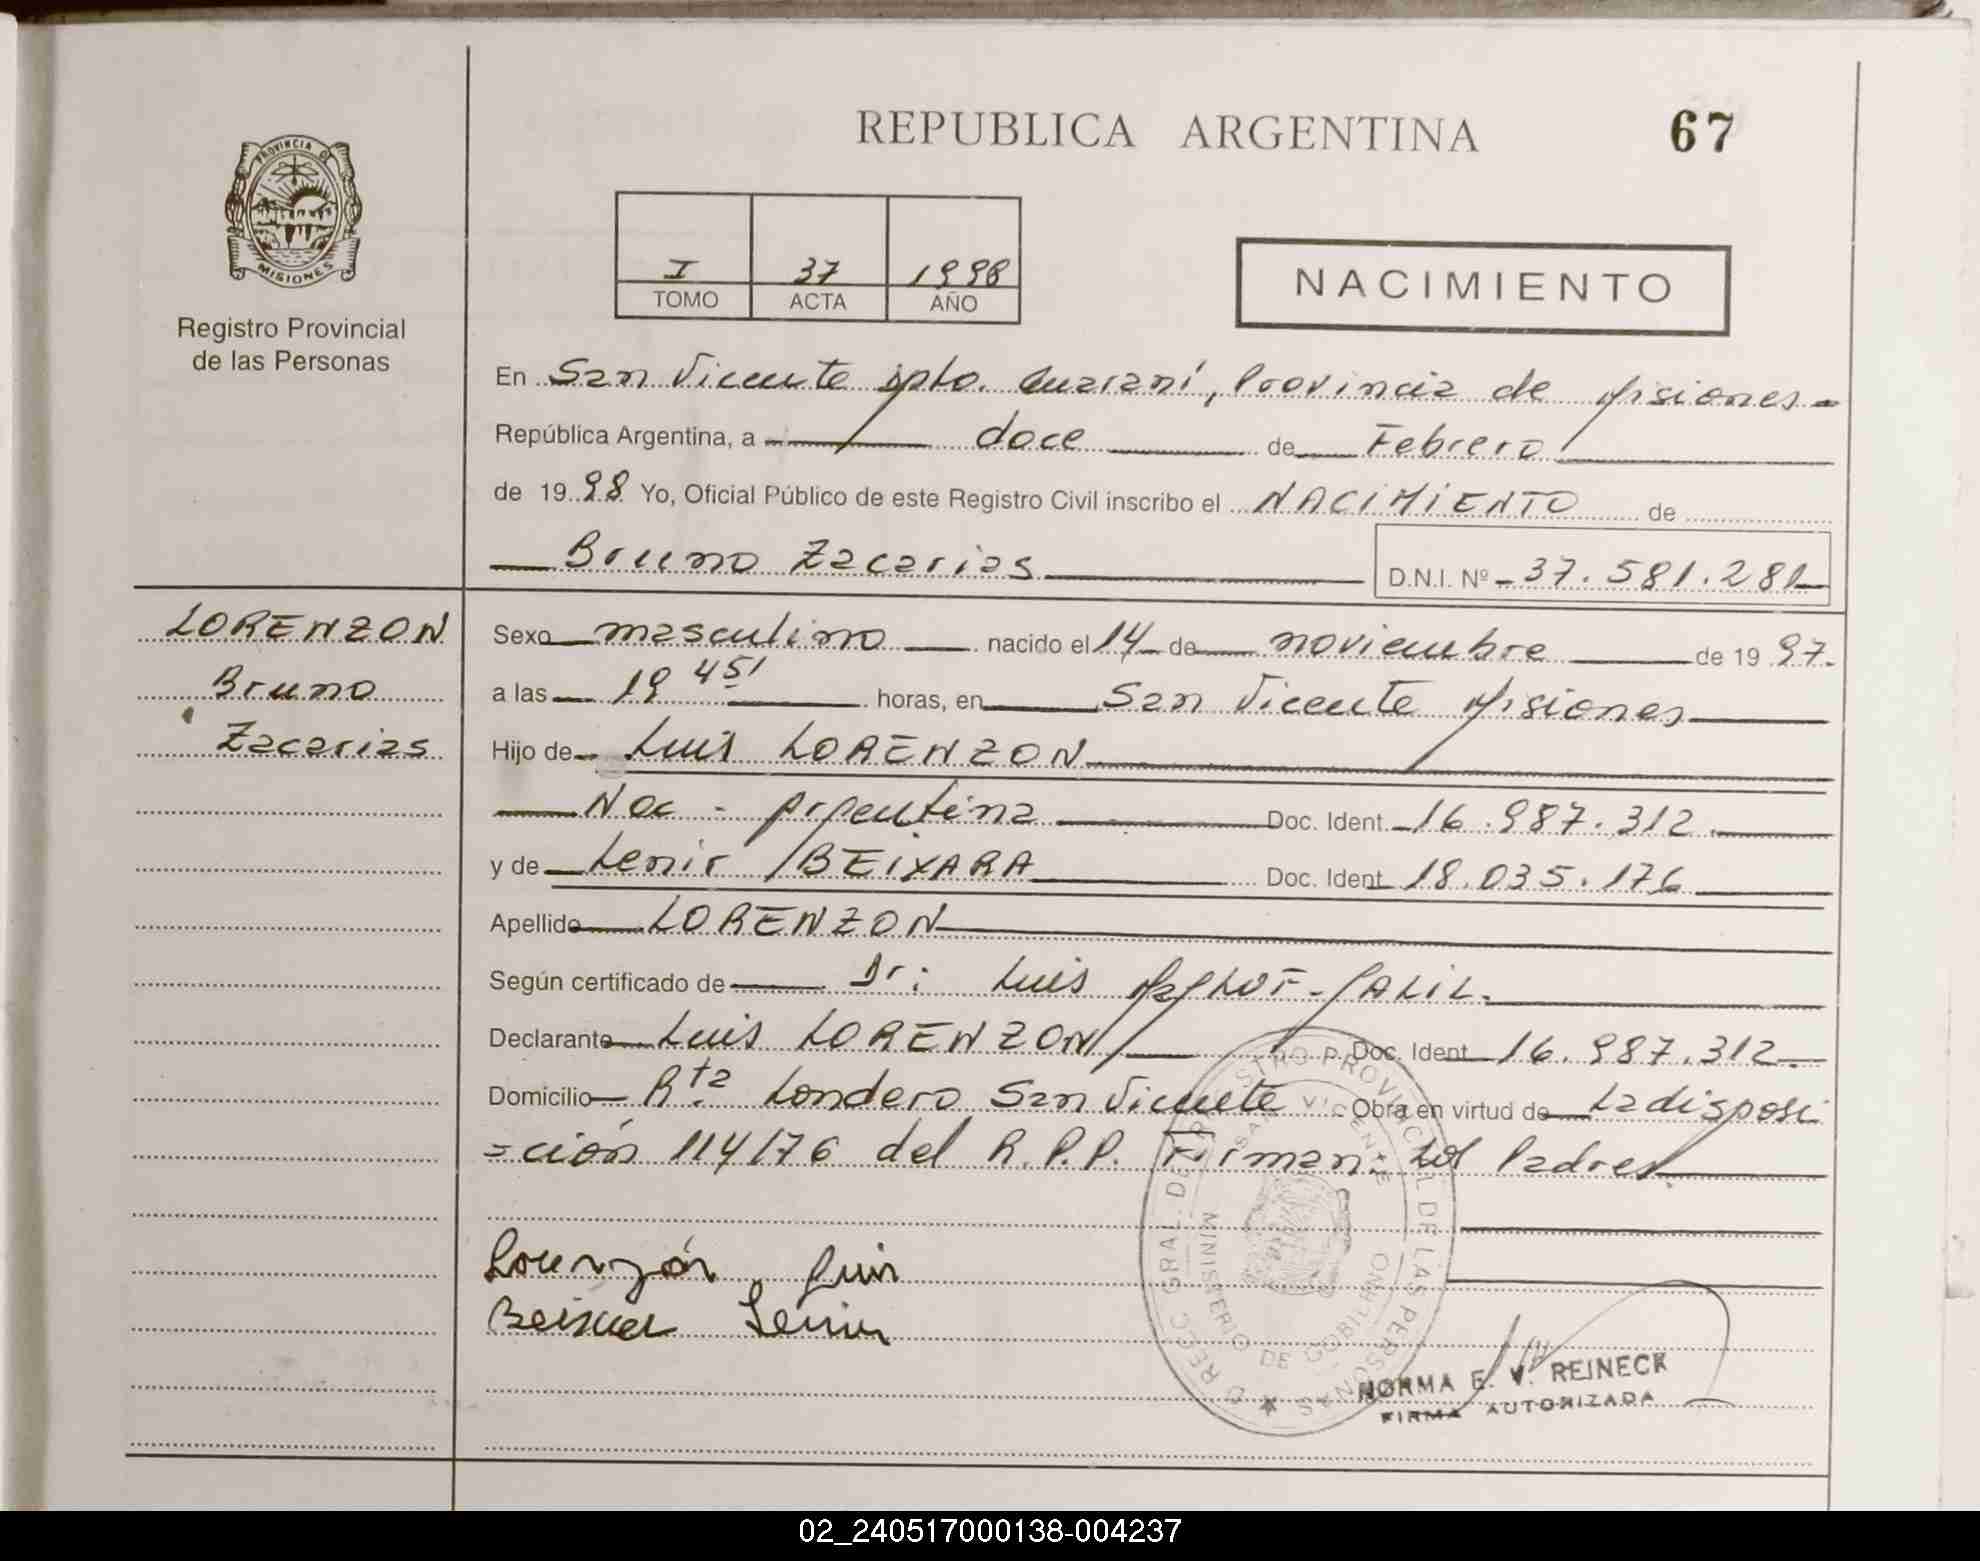 REPUBLICA ARGENTINA
67
PROVINCIA DE
MISIONES
Registro Provincial
de las Personas
I 37 1998
TOMO ACTA AÑO
NACIMIENTO
En San Vicente dpto. Guaraní, Provincia de Misiones
República Argentina, a doce de Febrero
de 1998 Yo, Oficial Público de este Registro Civil inscribo el NACIMIENTO de
Bruno Zacarias D.N.I. Nº 37.581.281
LORENZON
Bruno
Zacarias
Sexo masculino nacido el 14 de noviembre de 1997.
a las 19 45' horas, en San Vicente Misiones
Hijo de Luis LORENZON
Nac - Argentina Doc. Ident. 16.987.312.
y de Lenir BEIXARA Doc. Ident. 18.035.176
Apellido LORENZON
Según certificado de Dr: Luis GALIL.
Declarante Luis LORENZON Doc. Ident. 16.987.312.
Domicilio Rta Londero San Vicente Obra en virtud de La disposi
=ción 114/76 del R.P.P. Firman: Los Padres
Lorenzón Luis
Lenir
REGISTRO PROVINCIAL DE LAS PERSONAS
SAN VICENTE
MINISTERIO DE GOBIERNO
NORMA E. V. REINECK
FIRMA AUTORIZADA
02_240517000138-004237